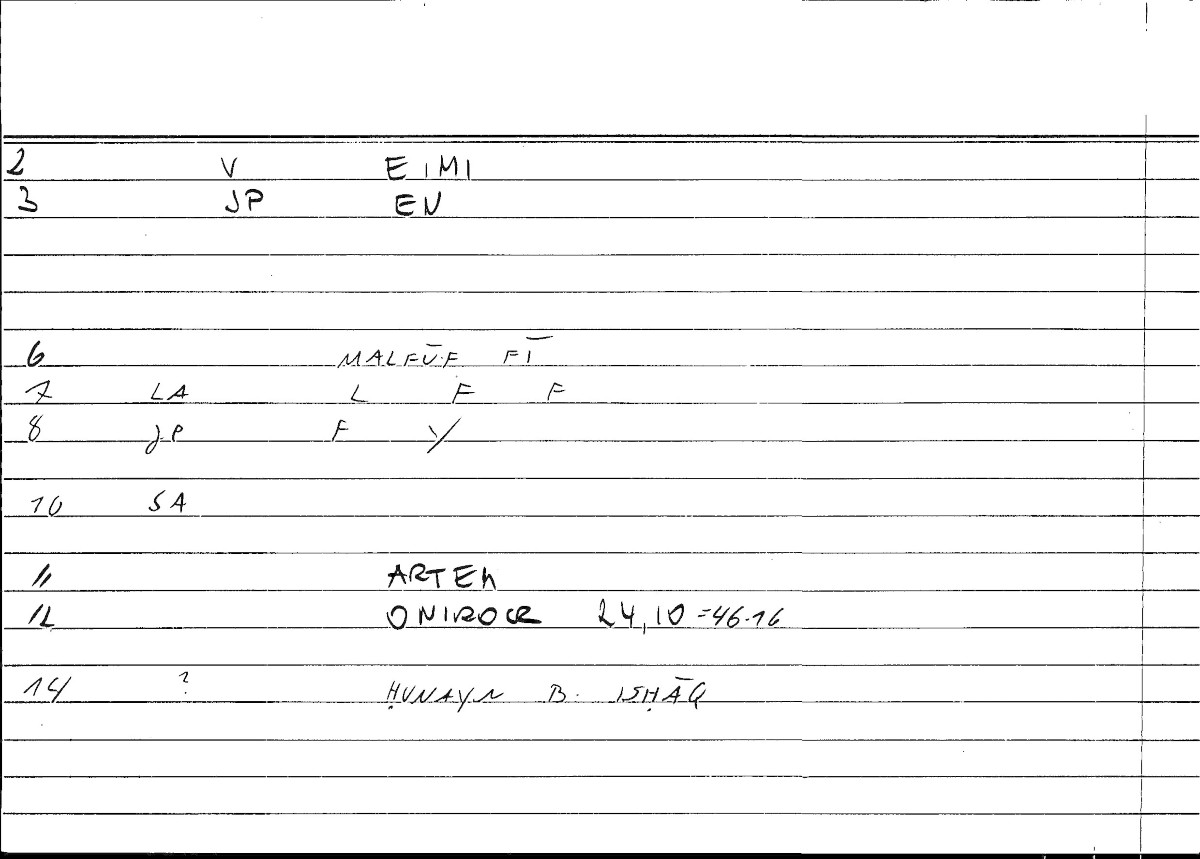 2 V EIMI
3 JP EN
6 MALFŪF FĪ
7 LA L F F
8 JP F Y
10 SA
11 ARTEM
12 ONIROCR 24,10 =46.16
14 ? ḤUNAYN B. ISḤĀQ